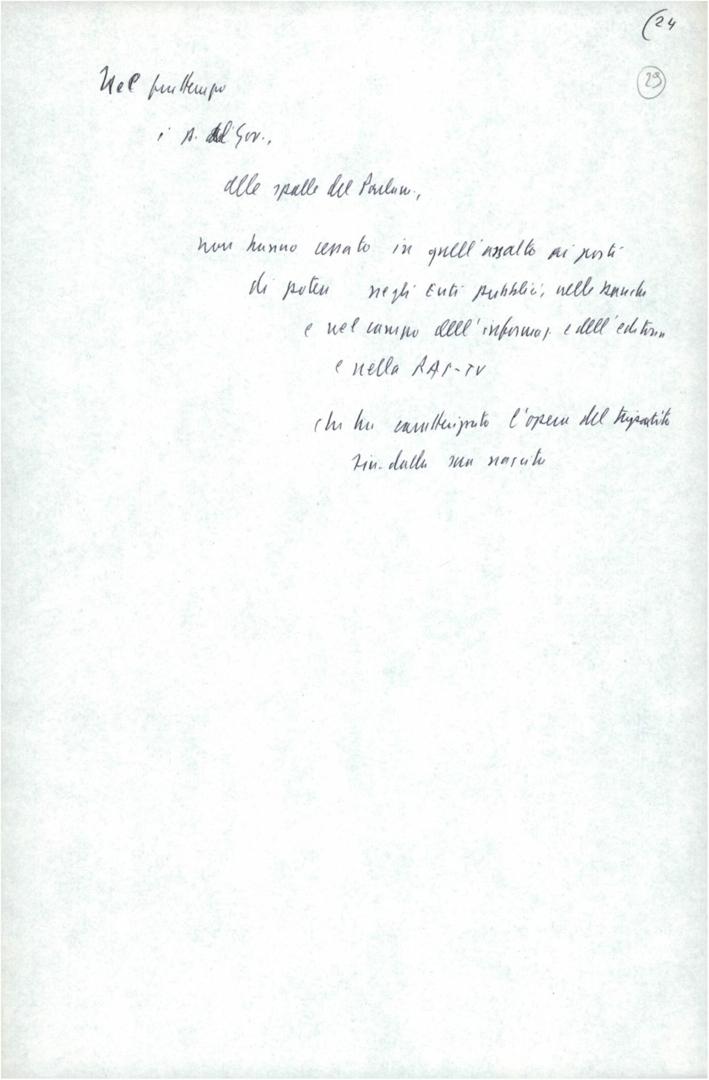 (24
29
Nel frattempo
i p. del Gov.,
alle spalle del Parlam.,
non hanno cessato in quell'assalto ai posti
di potere negli Enti pubblici, nelle banche
e nel campo dell'informaz. e dell'editoria
e nella RAI-TV
che ha caratterizzato l'opera del tripartito
sin dalla sua nascita